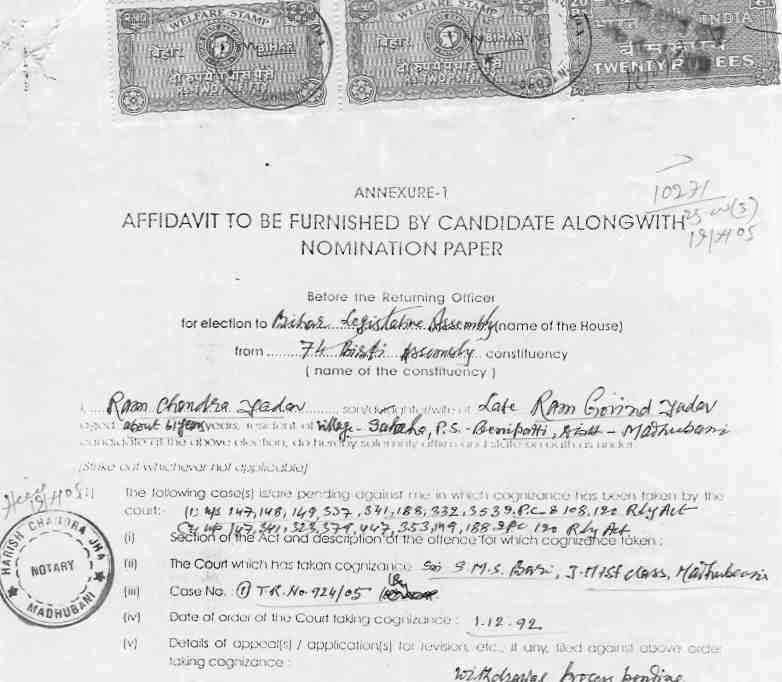 WELFARE STAMP WELFARE STAMP
बिहार BIHAR बिहार BIHAR INDIA
दो रुपये पचास पैसे दो रुपये पचास पैसे बीस रुपये
RS.TWO & FIFTY RS.TWO & FIFTY TWENTY RUPEES
10271
19/9/05
ANNEXURE-1
AFFIDAVIT TO BE FURNISHED BY CANDIDATE ALONGWITH
NOMINATION PAPER
Before the Returning Officer
for election to Bihar Legislative Assembly (name of the House)
from 74 Bisfi Assembly constituency
( name of the constituency )
I, Ram Chandra Yadav son/daughter/wife of Late Ram Govind Yadav
aged about 61 years years, resident of village - P.S. - Benipatti, Distt - Madhubani
candidate at the above election, do hereby solemnly affirm and state on oath as under:
(Strike out whichever not applicable)
The following case(s) is/are pending against me in which cognizance has been taken by the
court:- (1) u/s 147, 148, 149, 337, 341, 188, 332, 353 I.P.C & 108, 120 Rly Act
(2) u/s 147, 341, 323, 379, 447, 353, 149, 188 IPC 120 Rly Act
(i) Section of the Act and description of the offence for which cognizance taken :
(ii) The Court which has taken cognizance Sri S.M.S. J.M 1st class, Madhubani
(iii) Case No. (1) TR. No. 924/05
(iv) Date of order of the Court taking cognizance : 1.12.92
(v) Details of appeal(s) / application(s) for revision, etc., if any, filed against above order
taking cognizance :
withdrawal pending
HARISH CHANDRA JHA
NOTARY
MADHUBANI